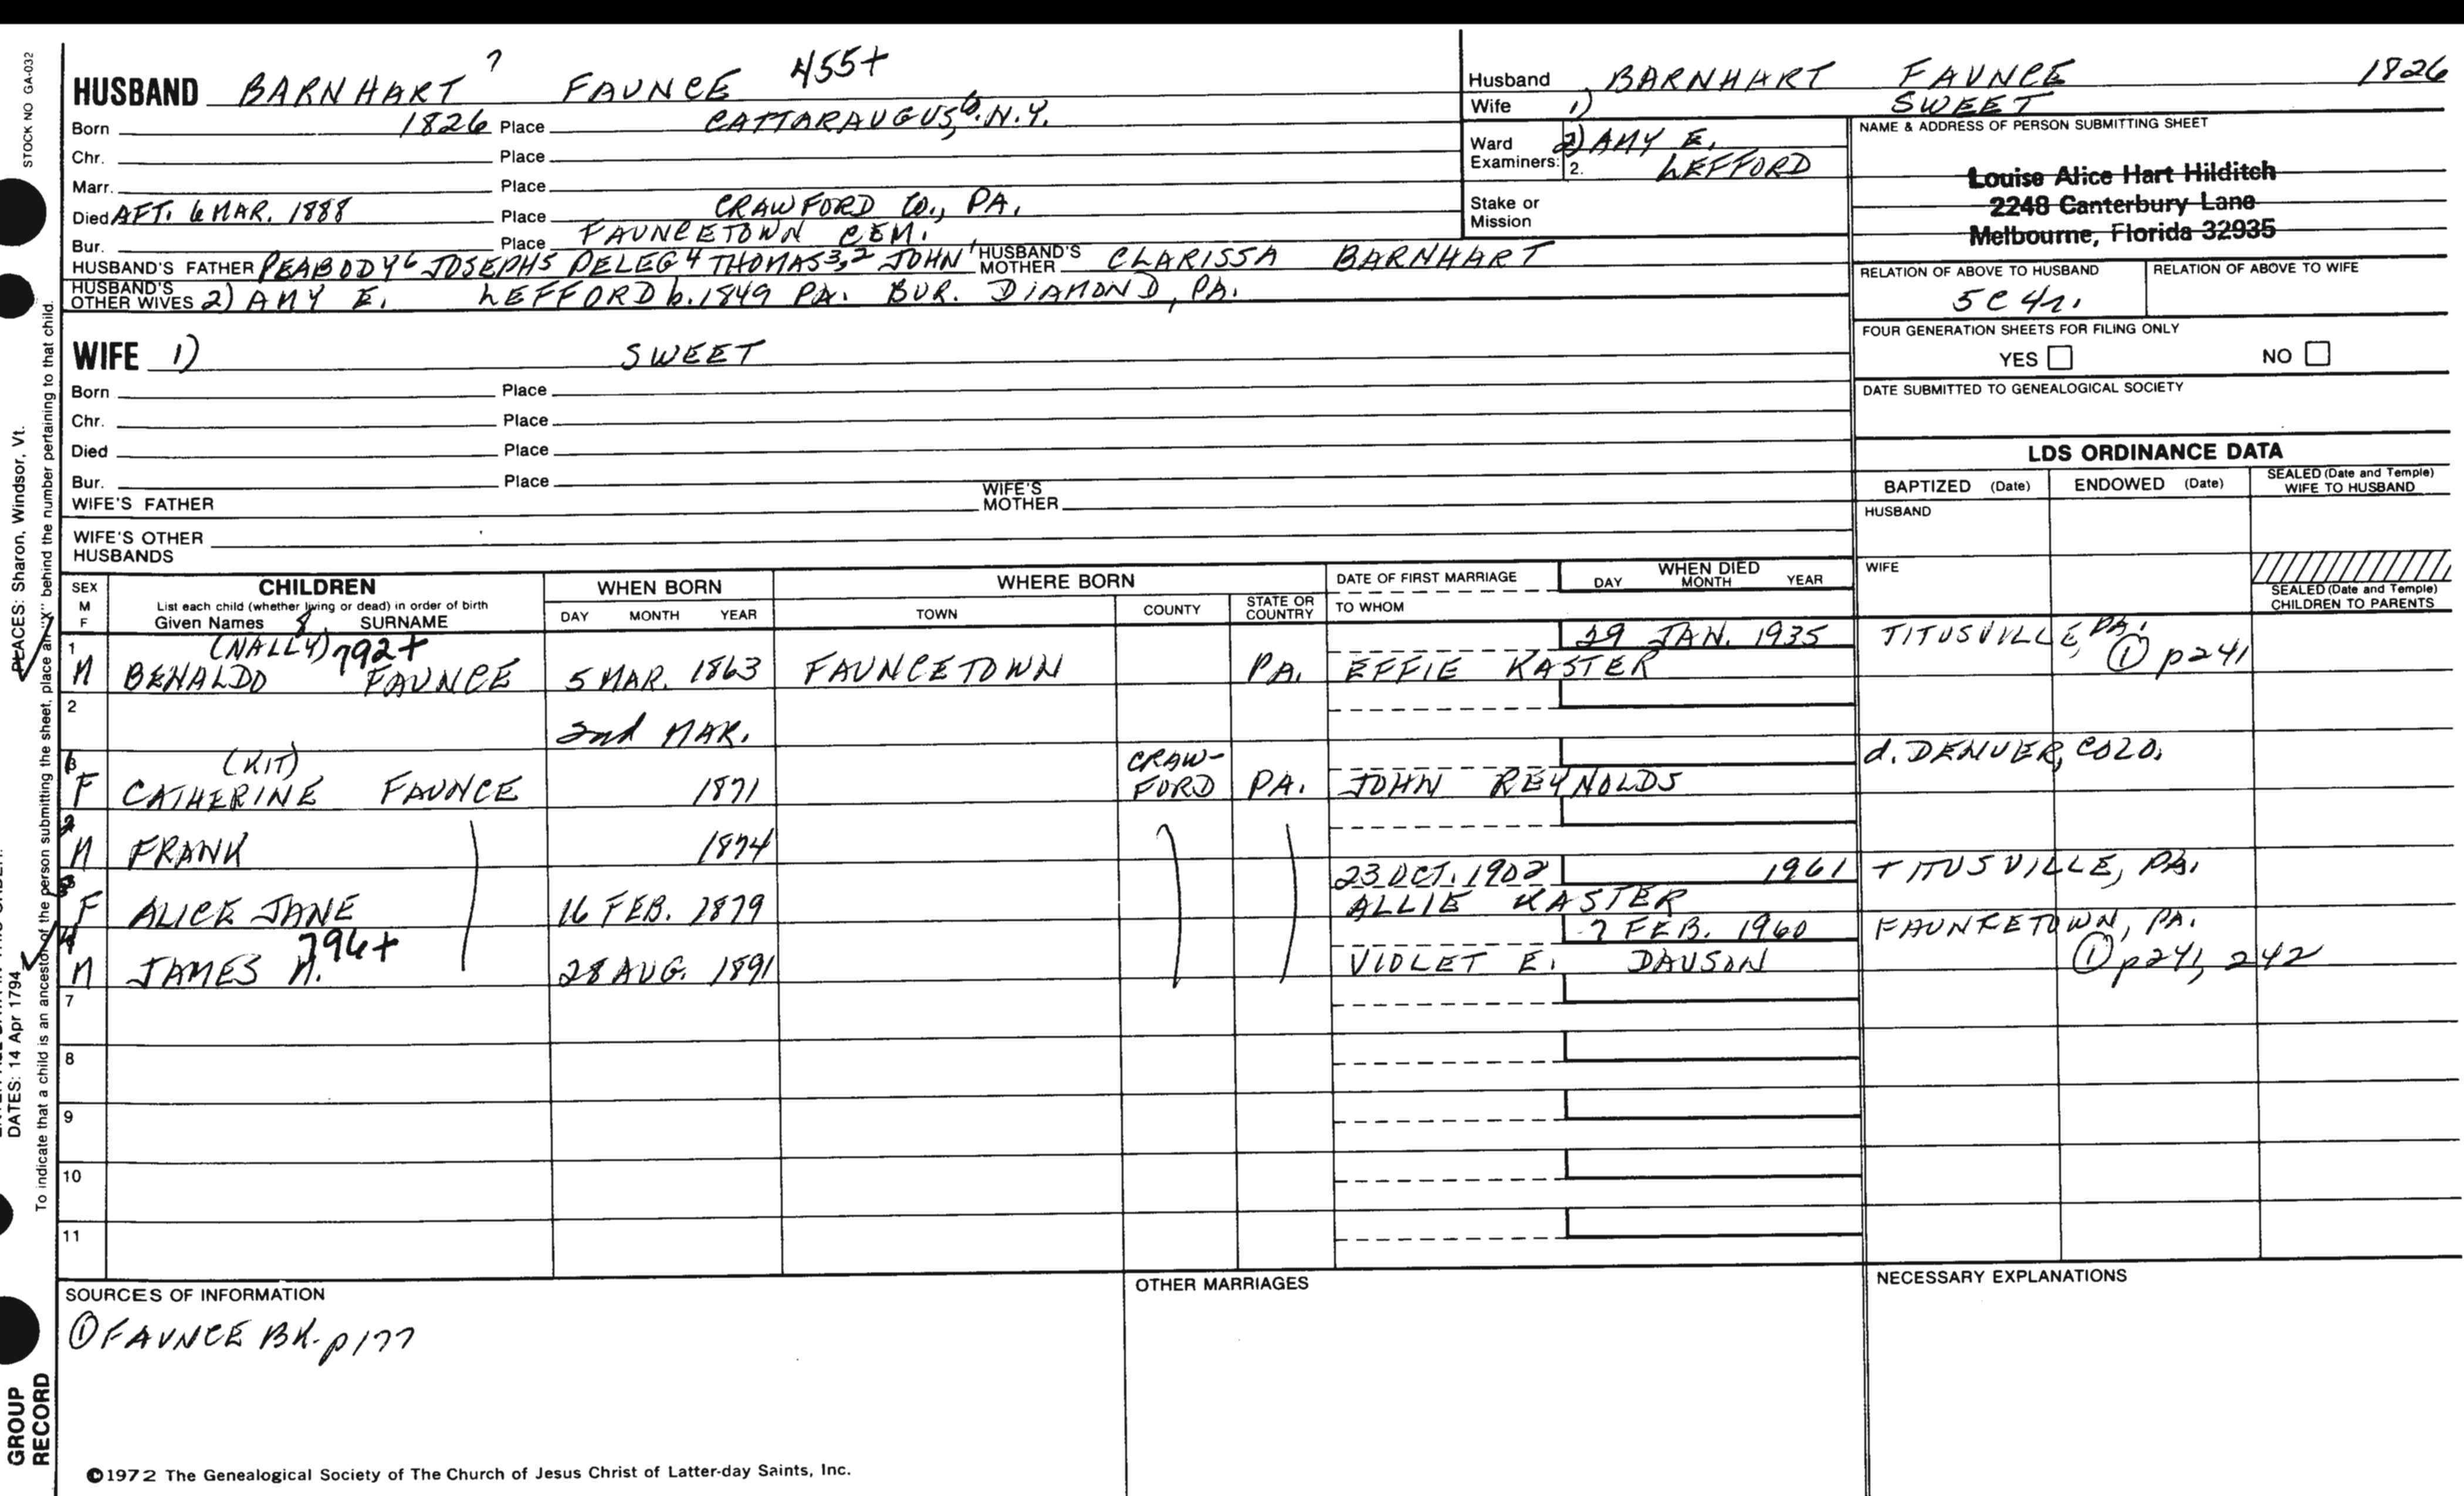 STOCK NO GA-032
HUSBAND BARNHART 7 FAUNCE 455+
Born 1826 Place CATTARAUGUS, Co. N.Y.
Chr. Place
Marr. Place
Died AFT. 6 MAR. 1888 Place CRAWFORD CO., PA.
Bur. Place FAUNCETOWN CEM.
HUSBAND'S FATHER PEABODY6 JOSEPH5 PELEG4 THOMAS3,2 JOHN1 HUSBAND'S MOTHER CLARISSA BARNHART
HUSBAND'S OTHER WIVES 2) AMY E. LEFFORD b. 1849 PA. BUR. DIAMOND, PA.
WIFE 1) SWEET
Born Place
Chr. Place
Died Place
Bur. Place
WIFE'S FATHER WIFE'S MOTHER
WIFE'S OTHER HUSBANDS
Husband BARNHART FAUNCE 1826
Wife 1) SWEET
Ward 2) AMY E.
Examiners: 2. LEFFORD
Stake or Mission
NAME & ADDRESS OF PERSON SUBMITTING SHEET
Louise Alice Hart Hilditch
2248 Canterbury Lane
Melbourne, Florida 32935
RELATION OF ABOVE TO HUSBAND RELATION OF ABOVE TO WIFE
5C 4r.
FOUR GENERATION SHEETS FOR FILING ONLY
YES NO
DATE SUBMITTED TO GENEALOGICAL SOCIETY
LDS ORDINANCE DATA
BAPTIZED (Date) ENDOWED (Date) SEALED (Date and Temple) WIFE TO HUSBAND
HUSBAND
WIFE
SEALED (Date and Temple) CHILDREN TO PARENTS
SEX M F CHILDREN WHEN BORN WHERE BORN DATE OF FIRST MARRIAGE WHEN DIED
List each child (whether living or dead) in order of birth
Given Names 8 SURNAME DAY MONTH YEAR TOWN COUNTY STATE OR COUNTRY TO WHOM DAY MONTH YEAR
1 (NALLY) 792+ 29 JAN. 1935 TITUSVILLE, PA.
M BENALDO FAUNCE 5 MAR. 1863 FAUNCETOWN PA. EFFIE KASTER ① p241
2
2nd MAR.
(KIT) CRAW- d. DENVER, COLO.
F CATHERINE FAUNCE 1871 FORD PA. JOHN REYNOLDS
2
M FRANK 1874
3 23 OCT. 1902 1961 TITUSVILLE, PA.
F ALICE JANE 16 FEB. 1879 ALLIE KASTER
4 796+ 7 FEB. 1960 FAUNCETOWN, PA.
M JAMES H. 28 AUG. 1891 VIOLET E. DAWSON ① p241, 242
7
8
9
10
11
SOURCES OF INFORMATION OTHER MARRIAGES NECESSARY EXPLANATIONS
① FAUNCE BK. p177
©1972 The Genealogical Society of The Church of Jesus Christ of Latter-day Saints, Inc.
PLACES: Sharon, Windsor, Vt.
DATES: 14 Apr 1794
To indicate that a child is an ancestor of the person submitting the sheet, place an "X" behind the number pertaining to that child.
GROUP
RECORD